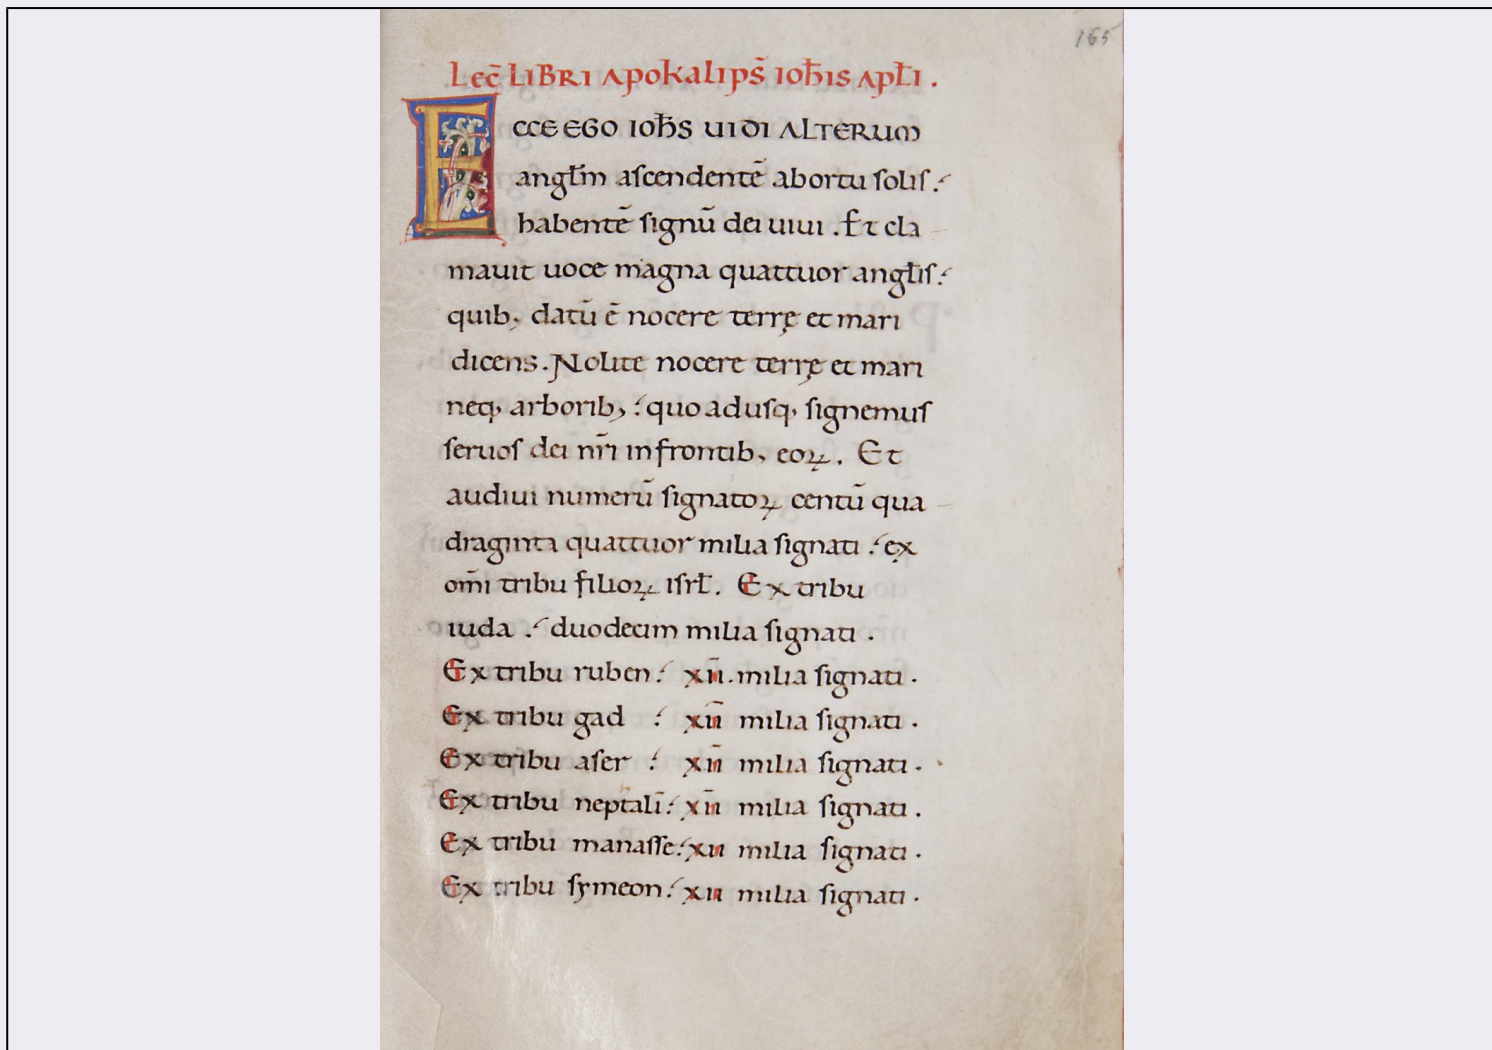 165
Lec̄ LIBRI Apokalips̄ Ioħis Apłi .
ECCE EGO IOħS UIDI ALTERUM
angłm ascendentē abortu solis.
habentē signū dei uiui . Et cla
mauit uoce magna quattuor angłis.
quib; datū ē nocere terrę et mari
dicens. Nolite nocere terrę et mari
neq; arborib; quo adusq; signemus
seruos dei nr̄i infrontib; eoꝝ. Et
audiui numerū signatoꝝ centū qua
draginta quattuor milia signati ex
om̄i tribu filioꝝ isrł. Ex tribu
iuda . duodecim milia signati .
Ex tribu ruben xīī. milia signati .
Ex tribu gad xīī milia signati .
Ex tribu aser xīī milia signati .
Ex tribu neptalī xīī milia signati .
Ex tribu manasse xii milia signati .
Ex tribu symeon xii milia signati .